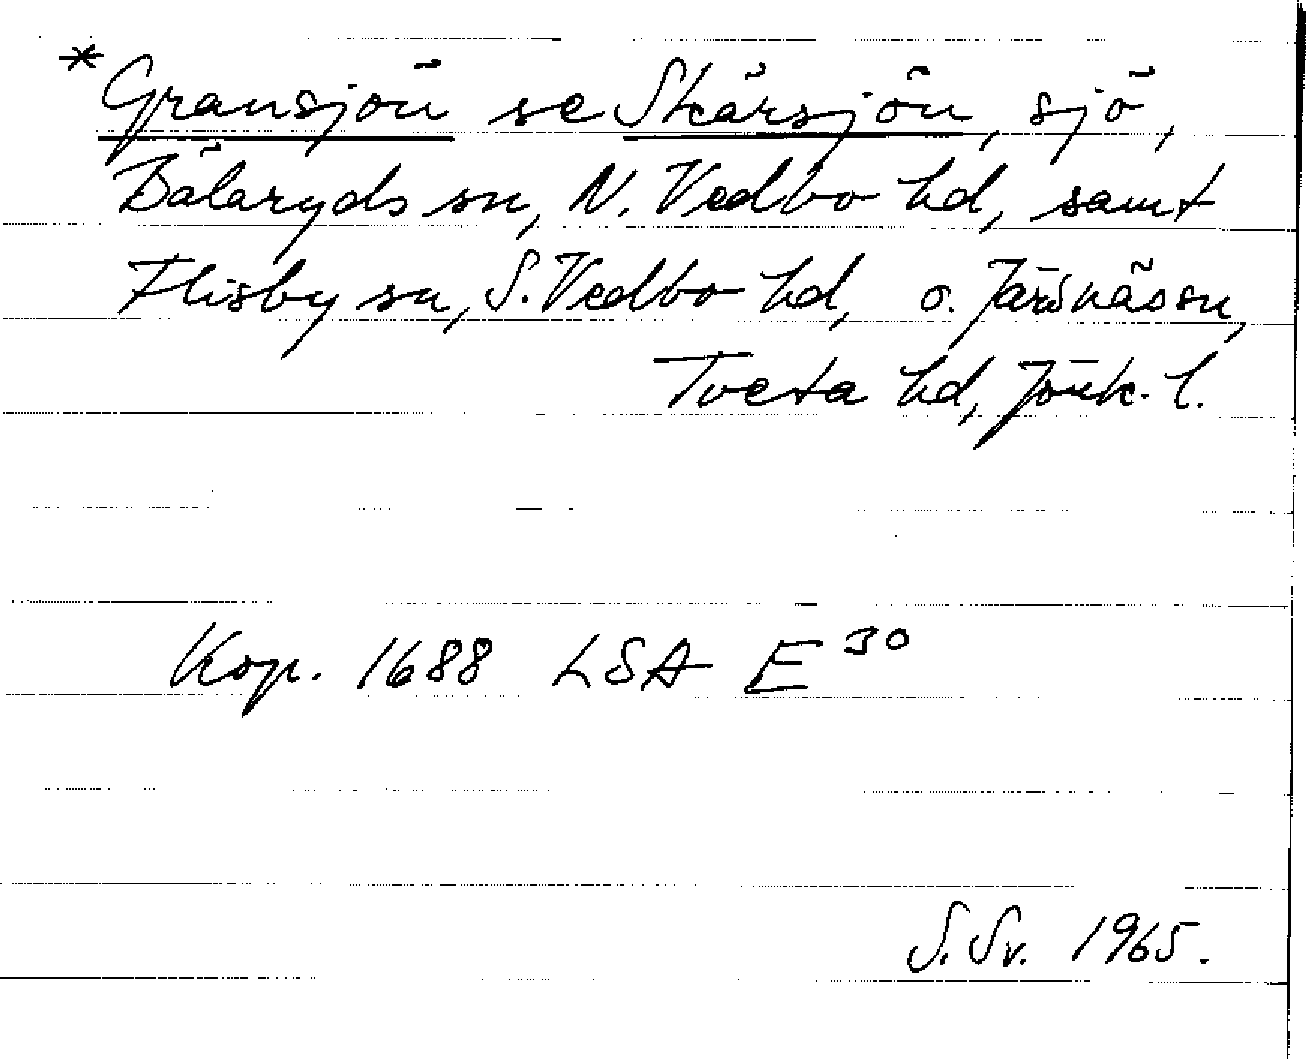 * Gransjön se Skärsjön, sjö,
Bälaryds sn, N. Vedbo hd, samt
Flisby sn, S. Vedbo hd, o. Järsnäs sn,
Tveta hd, Jönk. l.
Kop. 1688 LSA E 30
S. Sv. 1965.